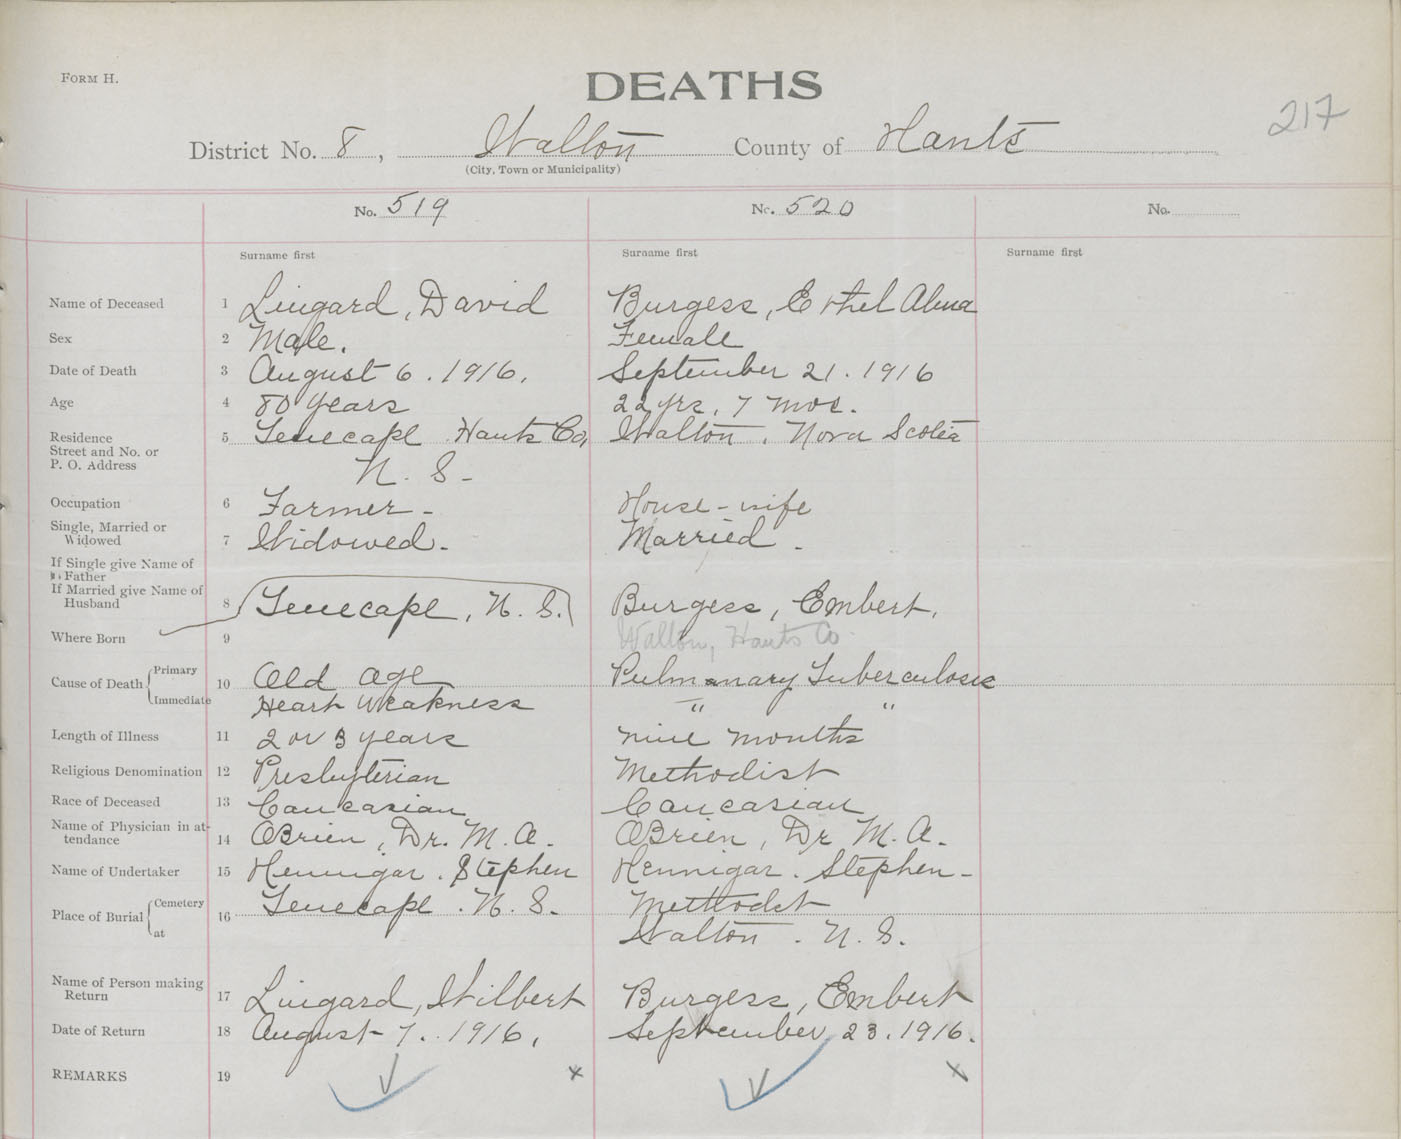 FORM H.
DEATHS
217
District No. 8, Walton County of Hants
(City, Town or Municipality)
No. 519 No. 520 No.
Surname first Surname first Surname first
Name of Deceased 1 Lingard, David Burgess, Ethel Alma
Sex 2 Male. Female
Date of Death 3 August 6. 1916. September 21. 1916
Age 4 80 years 22 yrs, 7 mos.
Residence 5 Tenecape Hants Co, Walton. Nova Scotia
Street and No. or
P. O. Address N. S.-
Occupation 6 Farmer- House-wife
Single, Married or
Widowed 7 Widowed. Married.
If Single give Name of
Father
If Married give Name of
Husband 8 Tenecape, N. S. Burgess, Embert.
Where Born 9 Walton, Hants Co
Cause of Death Primary 10 Old age Pulmonary Tuberculosis
Immediate Heart Weakness " "
Length of Illness 11 2 or 3 years nine months
Religious Denomination 12 Presbyterian Methodist
Race of Deceased 13 Caucasian Caucasian
Name of Physician in at-
tendance 14 OBrien, Dr. M. A. OBrien, Dr M. A.
Name of Undertaker 15 Hennigar. Stephen Hennigar. Stephen-
Place of Burial Cemetery 16 Tenecape. N. S. Methodst
at Walton. N. S.
Name of Person making
Return 17 Lingard, Wilbert Burgess, Embert
Date of Return 18 August 7. 1916. September 23. 1916.
REMARKS 19 x x